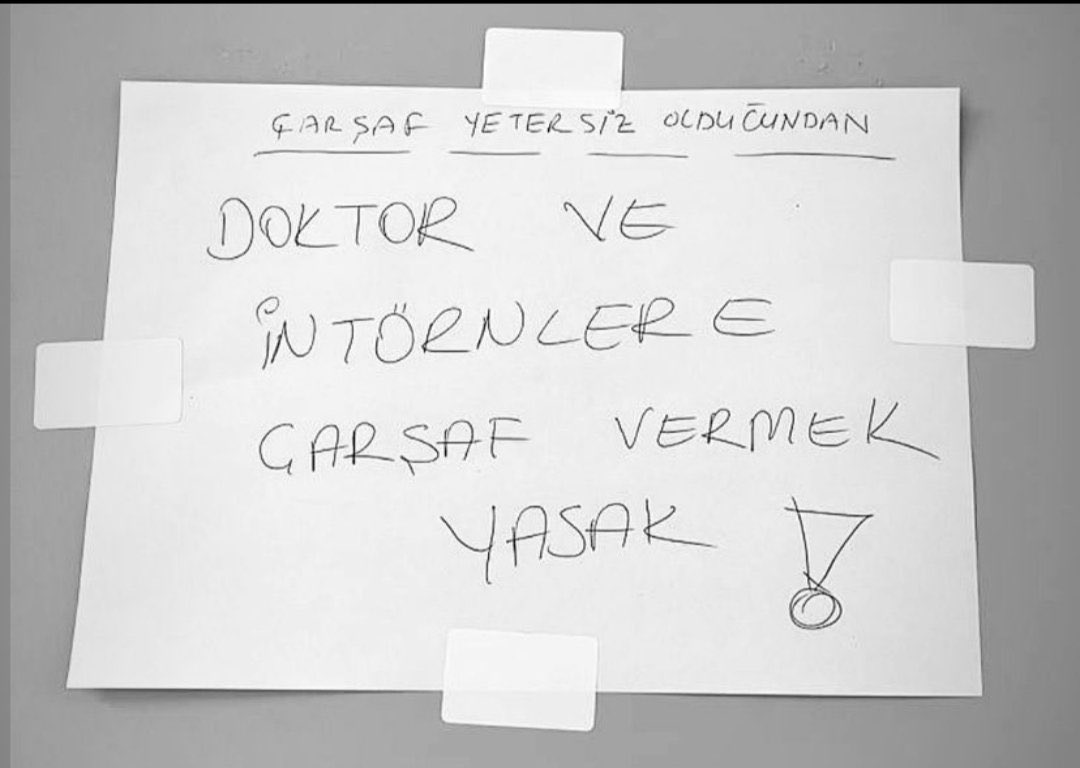 ÇARŞAF YETERSİZ OLDUĞUNDAN
DOKTOR VE
İNTÖRNLERE
ÇARŞAF VERMEK
YASAK !